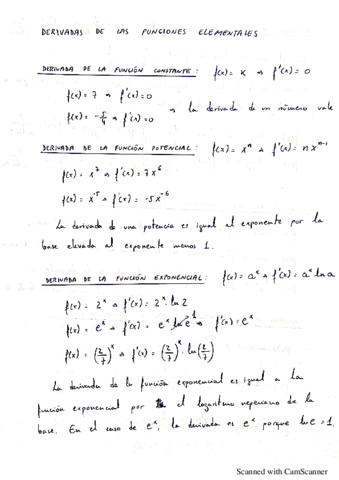 DERIVADAS DE LAS FUNCIONES ELEMENTALES
DERIVADA DE LA FUNCIÓN CONSTANTE: f(x) = K → f'(x) = 0
f(x) = 7 → f'(x) = 0
→ La derivada de un número vale
f(x) = -5/4 → f'(x) = 0
DERIVADA DE LA FUNCIÓN POTENCIAL: f(x) = xⁿ → f'(x) = n xⁿ⁻¹
f(x) = x⁷ → f'(x) = 7x⁶
f(x) = x⁻⁵ → f'(x) = -5x⁻⁶
La derivada de una potencia es igual al exponente por la
base elevada al exponente menos 1.
DERIVADA DE LA FUNCIÓN EXPONENCIAL: f(x) = aˣ → f'(x) = aˣ ln a
f(x) = 2ˣ → f'(x) = 2ˣ · ln 2
f(x) = eˣ → f'(x) = eˣ ln e 1 → f'(x) = eˣ
f(x) = (2/7)ˣ → f'(x) = (2/7)ˣ · ln(2/7)
La derivada de la función exponencial es igual a la
función exponencial por el logaritmo neperiano de la
base. En el caso de eˣ, la derivada es eˣ porque ln e = 1.
Scanned with CamScanner